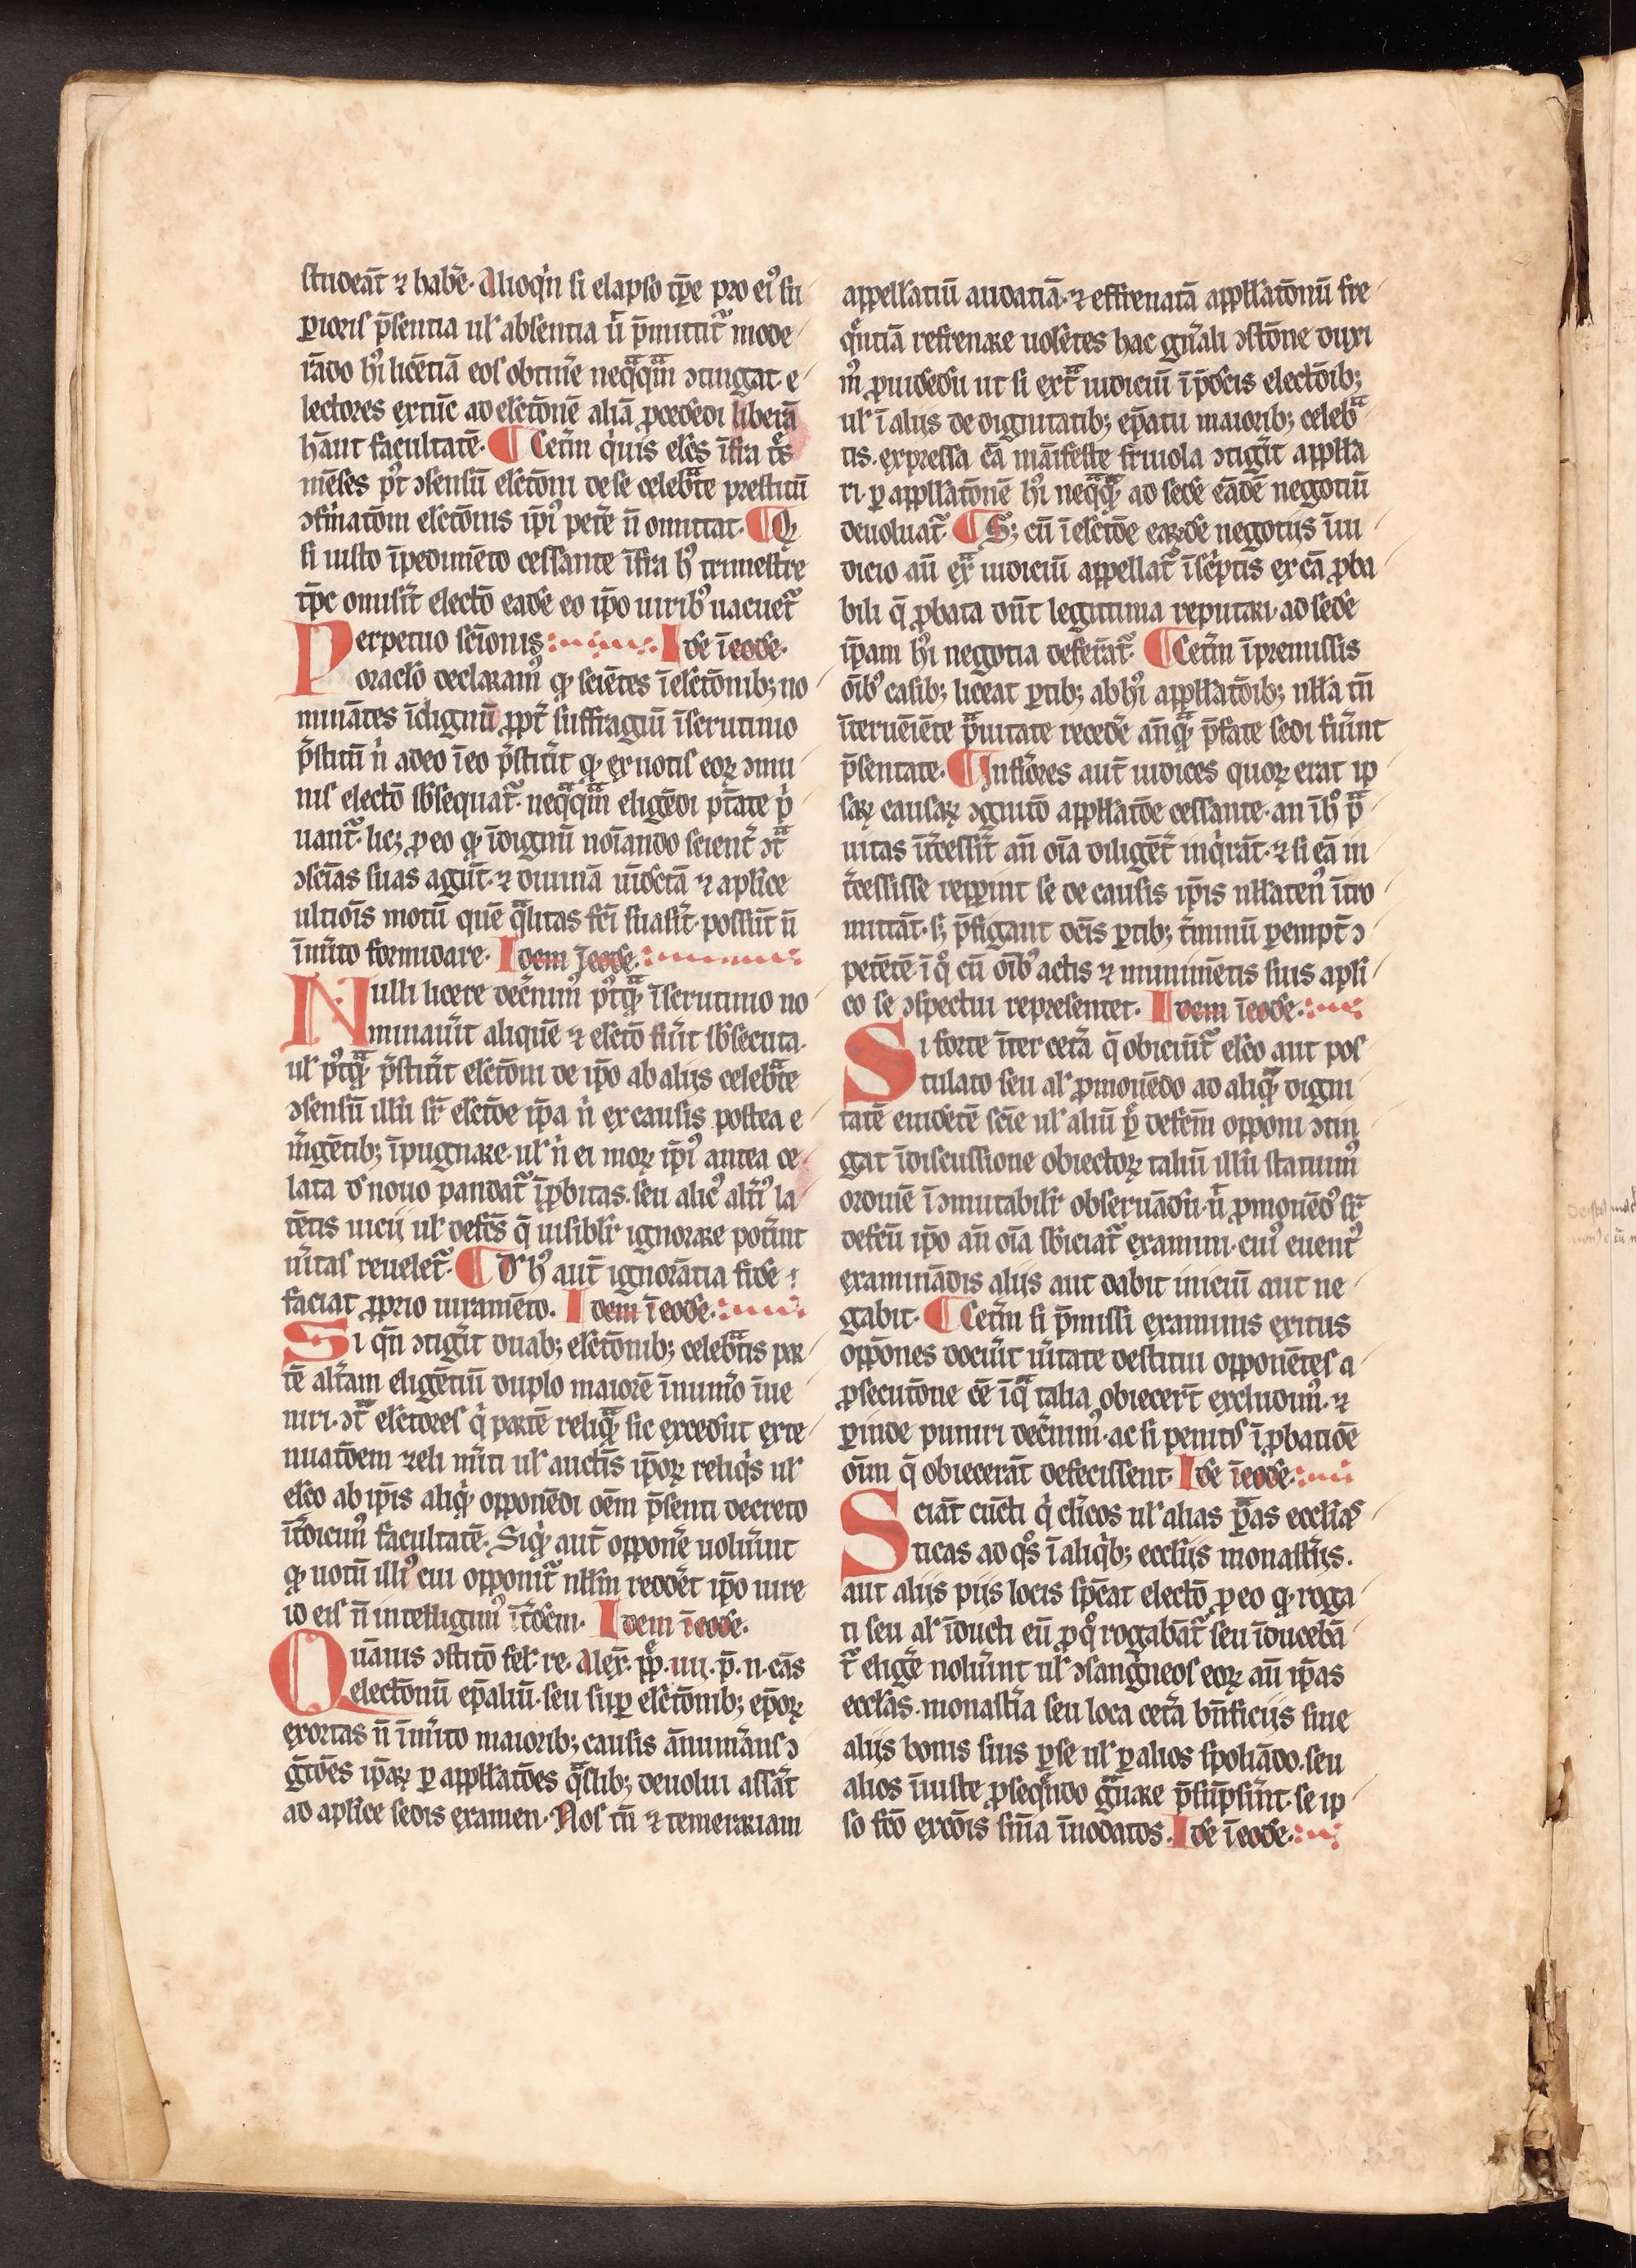 studeāt ⁊ habe᷑. Alioq̇n si elapso tp̄e pro ei᷒ su
ꝑioris p̄sentia ul̓ absentia ū p̄mittit᷑ mode
rādo hi᷒ licētiā eos obtine᷑ neqͣqͣm ↄtingat. e
lectores extūc ad elc̄tōnē aliā ꝓcedēdi liberā
hāant facultatē. ¶ Cet̄m q̇uis elc̄s īfra t̄s
mēses pꝰt ↄsensū elc̄tōni de se celebͣte prestitū
ↄfirmatōm elc̄tōnis ip̄iꝰ pete᷑ n̄ omittat. ¶ Qꝫ
si iusto īpedimēto cessante īfra hꝰ trimestre
tp̄s omiſit̄ electō eadē eo ip̄o uiribꝰ uacuet᷑
Perpetuo sc̄ionis Idē ī eodē.
oraclo declaramꝰ ꝙ sciētes ī elc̄tōnibꝫ no
minātes īdignū ꝓpt̄ suffragiū ī scrutinio
p̄stitū n̍ adeo ī eo p̄stit̄it ꝙ ex uotis eoꝝ ↄmu
nis electō sb̄sequat᷑. neqͣqͣm eligēdi pt̄ate p̍
uant᷑. licꝫ ꝓ eo ꝙ īdignū noīando scient̄ ↄtͣ
ↄsciās suas agūt. ⁊ diuinā uīdictā ⁊ aplice
ultiois motū quē qͣlitas fc̄i suaſit̄. possūt n̄
īmīto formidare. Idem ī eodē.
Nulli licere dec̄nimꝰ pꝰtqͣꝫ ī scrutinio no
minaūit aliquē ⁊ elc̄tō fūit sb̄secuta.
ul̓ pꝰtqͣꝫ p̄stit̄it elc̄tōni de ip̄o ab alijs celebͣte
ↄsensū illū sr̄ elc̄tōe ip̄a n̍ ex causis postea e
m̄gētibꝫ īpugnare. ul̓ n̍ ei moꝝ ip̄iꝰ antea ce
lata d̄ nouo pandat᷑ īꝓbitas. seu alicꝰ alt̄iꝰ la
tētis uicij ul̓ defc̄s q̄ uisiblr̄ ignorare pot̄unt
u̍itas reuelet᷑. ¶ D̄ hꝰ aūt ignorātia fidē
faciat ꝓprio iuramēto. Idem ī eodē.
Si qn̄ ↄtiḡit duabꝫ elc̄tōnibꝫ celebͣtis par
tē alt̄am eligētiū duplo maiorē ī num̄o īue
niri. ↄtͣ elc̄tores q̍ partē reliqͣꝫ sic excedūt exte
nuatōem zeli m̄iti ul̓ auctīs ip̄oꝝ reliq̍s ul̓
elc̄o ab ip̄is aliq̍ꝫ opponēdi oēm p̄senti decreto
īt̄dicimꝰ facultatē. Siq̍ꝫ aūt oppone᷑ uolūint
ꝙ uotū illiꝰ cui opponit᷑ nll̄m redd̄et ip̄o iure
id eis n̄ intelligimꝰ īt̄dc̄m. Idem ī eodē.
Quāuis ↄstitō fel̓. re. Alex̄. pp̄. iiij. p̄. n. cās
electōnū ep̄aliū. seu suꝑ elc̄tōnibꝫ ep̄oꝝ
exortas n̄ īm̄ito maioribꝫ causis ānum̄ans ↄ
gtōes ip̄aꝝ ꝑ appll̄atōes qͣslibꝫ deuolui assāt
ad aplice sedis examen. Nos tn̄ ⁊ temerariam
appellātiū audatiā. ⁊ effrenatā appll̄atōnū fre
qn̄tiā refrenare uolētes hac gn̄ali ↄstōne duxi
mꝰ ꝓuidēdū ut si extͣ iudiciū ī p̄dc̄is electōibꝫ
ul̓ ī alijs de dignitatibꝫ ep̄atu maioribꝫ celebͣ
tis. expressa cā māifeste friuola ↄtiḡit appll̄a
ri. ꝑ appll̄atōnē hi᷒ neqͣqͣꝫ ad sedē eādē negotiū
deuoluat᷑. ¶ Sꝫ cū ī elc̄tōe eaꝝdē negotijs ī iu
dicio aū exͣ iudiciū appellat᷑ īsc̍ptis ex cā ꝓba
bili q̄ ꝓbata dn̄t legittima reputari. ad sedē
ip̄am hi᷒ negotia defe᷑āt᷑. ¶ Cet̄m ī premissis
oībꝰ casibꝫ liceat ꝑtibꝫ ab hi᷒ appll̄atōibꝫ nll̄a tn̄
īterueniēte pͣuitate recede᷑ ān̄qͣꝫ p̄fate sedi fūint
p̄sentate. ¶ Inf̄iores aūt iudices quoꝝ erat ip
saꝝ causaꝝ ↄgnitō appll̄atōe cessante. an ī hꝰ pͣ
uitas īt̄cessit̄ an̄ oīa diligēt̄ inq̍rāt. ⁊ si eā in
t̄cessisse repp̄int se de causis ip̄is nll̄atenꝰ ītro
mittāt. sꝫ p̄figant dc̄is ꝑtibꝫ t̄minū ꝑempt̄ ↄ
petētē ī qͦ cū oībꝰ actis ⁊ munimētis suis apli
co se ↄspectui representet. Idem ī eodē.
Si forte īter cet̄a q̄ obiciūt᷑ elc̄o aut pos
tulato seu al̓ ꝓmouēdo ad aliqͣꝫ digni
tatē euidētē sciē ul̓ aliū ꝑ̍ defcm̄ opponi ↄtin
gat ī discussione obiectoꝝ taliū illū statuimꝰ
ordinē īↄmutabilr̄ obseruādū. ū ꝓmouēdꝰ sr̄
defcū ip̄o an̄ oīa sb̄iciat᷑ examini. cuiꝰ euentꝰ
examinādis alijs aut dabit iniciū aut ne
gabit. ¶ Cet̄m si p̄missi examinis exitus
opp̄ones docūit u̍itate destitui opponētes a
ꝓsecutōne cē ī qͣ talia obiecer̄t excludimꝰ. ⁊
ꝑinde puniri dec̄nimꝰ. ac si penitꝰ ī ꝓbatiōe
oīm q̄ obiecerāt defecissent. Idē ī eodē.
Sciāt cūcti q̍ clīcos ul̓ alias ꝑͣas eccl̄ias
ticas ad qͦs ī aliq̍bꝫ eccl̄ijs monast̄ijs.
aut alijs pijs locis sp̄cat electō ꝓ eo ꝙ roga
ti seu al̓ īducti eū ꝓ qͦ rogabāt᷑ seu īducebā
t᷑ elige᷑ nolūint ul̓ ↄsang̍neos eoꝝ aū ip̄as
eccl̄as. monast̄ia seu loca cet̄a bn̄ficijs siue
alijs bonis suis ꝑ se ul̓ ꝑ alios spoliādo. seu
alios īiuste ꝓseqn̄do gͣuare p̄sūpſint. se ip
so fc̄o exc̄ois sn̄ia īnodatos. Idē ī eodē.